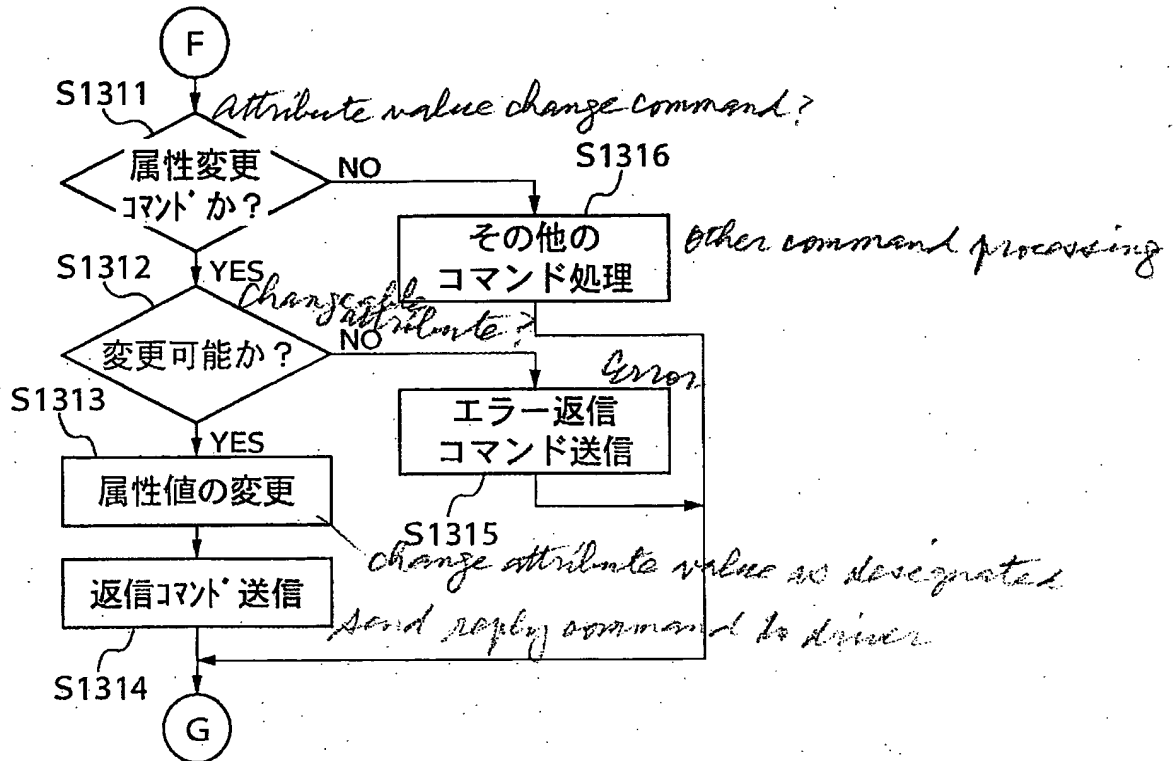 F
S1311
Attribute value change command?
属性変更
コマンドか？
NO
S1316
その他の
コマンド処理
Other command processing
S1312
YES
Changeable
attribute?
変更可能か？
NO
Error
S1313
エラー返信
コマンド送信
YES
属性値の変更
S1315
change attribute value as designated
返信コマンド送信
send reply command to driver
S1314
G